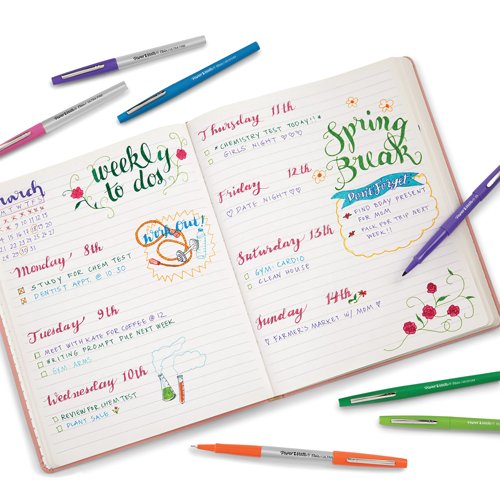 PAPER MATE
PAPER MATE
PAPER MATE
march
weekly
to dos
Monday 8th
workout!
STUDY FOR CHEM TEST
DENTIST APPT. @ 10:30
Tuesday 9th
MEET WITH KATE FOR COFFEE @ 12
WRITING PROMPT DUE NEXT WEEK
GYM: ARMS
Wednesday 10th
REVIEW FOR CHEM TEST
PLANT SALE
Thursday 11th
CHEMISTRY TEST TODAY!!
GIRLS NIGHT
Friday 12th
DATE NIGHT
Saturday 13th
GYM: CARDIO
CLEAN HOUSE
Sunday 14th
FARMER'S MARKET W/ MOM
Spring
Break
Don't Forget
FIND BDAY PRESENT
FOR MOM
PACK FOR TRIP NEXT
WEEK!!
PAPER MATE
PAPER MATE
PAPER MATE